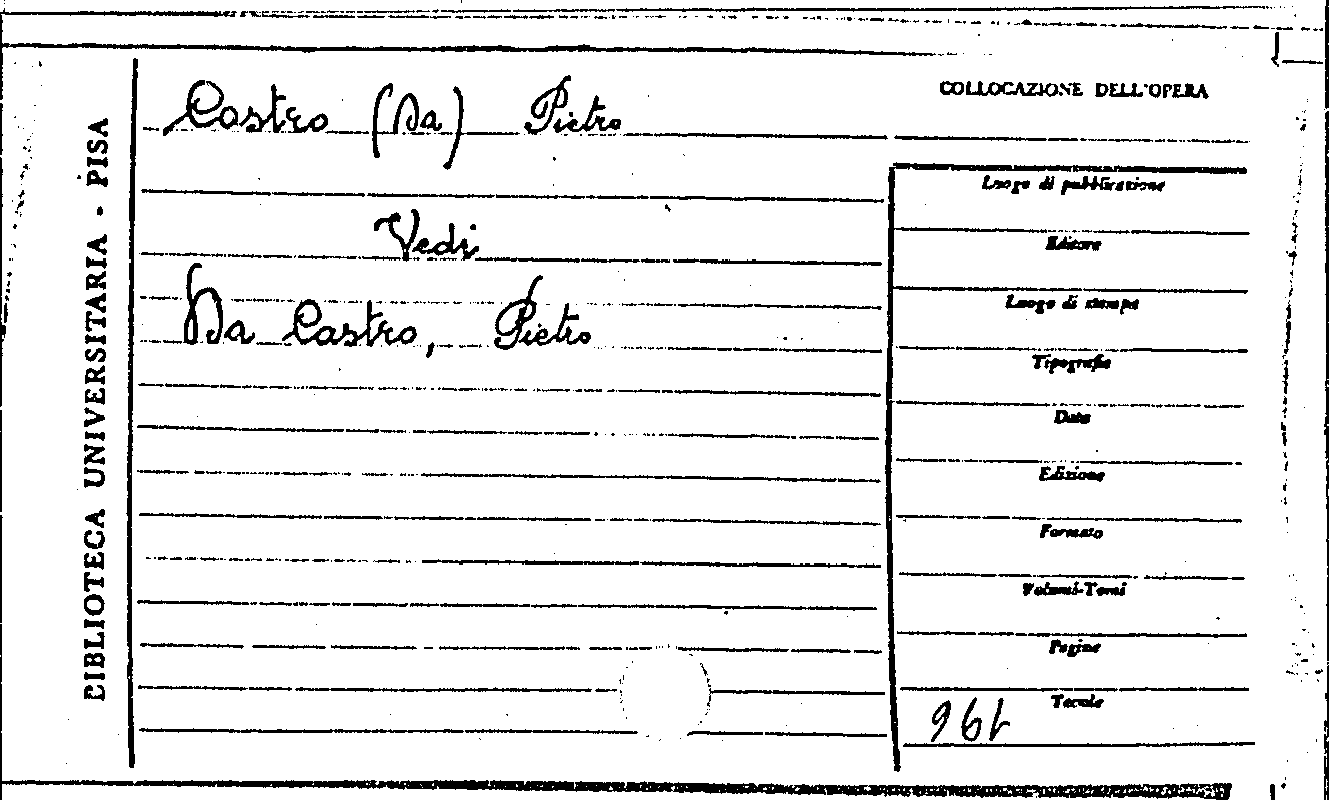 BIBLIOTECA UNIVERSITARIA - PISA
Castro (Da) Pietro
Vedi
Da Castro, Pietro
COLLOCAZIONE DELL'OPERA
Luogo di pubblicazione
Editore
Luogo di stampa
Tipografia
Data
Edizione
Formato
Volumi-Tomi
Pagine
Tavole